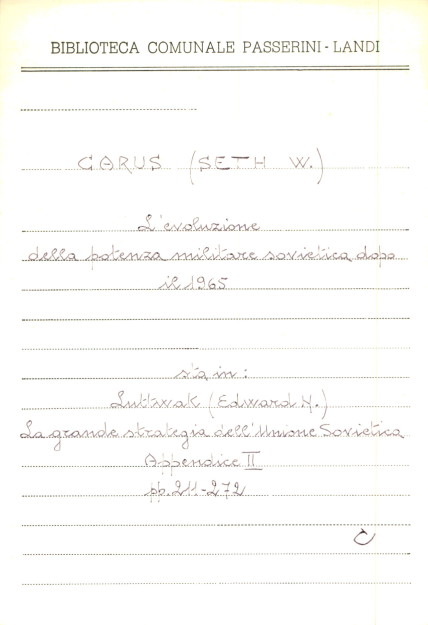 BIBLIOTECA COMUNALE PASSERINI-LANDI
CARUS (SETH W.)
L'evoluzione
della potenza militare sovietica dopo
il 1965
sta in:
Luttwak (Edward N.)
La grande strategia dell'Unione Sovietica
Appendice II
pp. 211-272
C